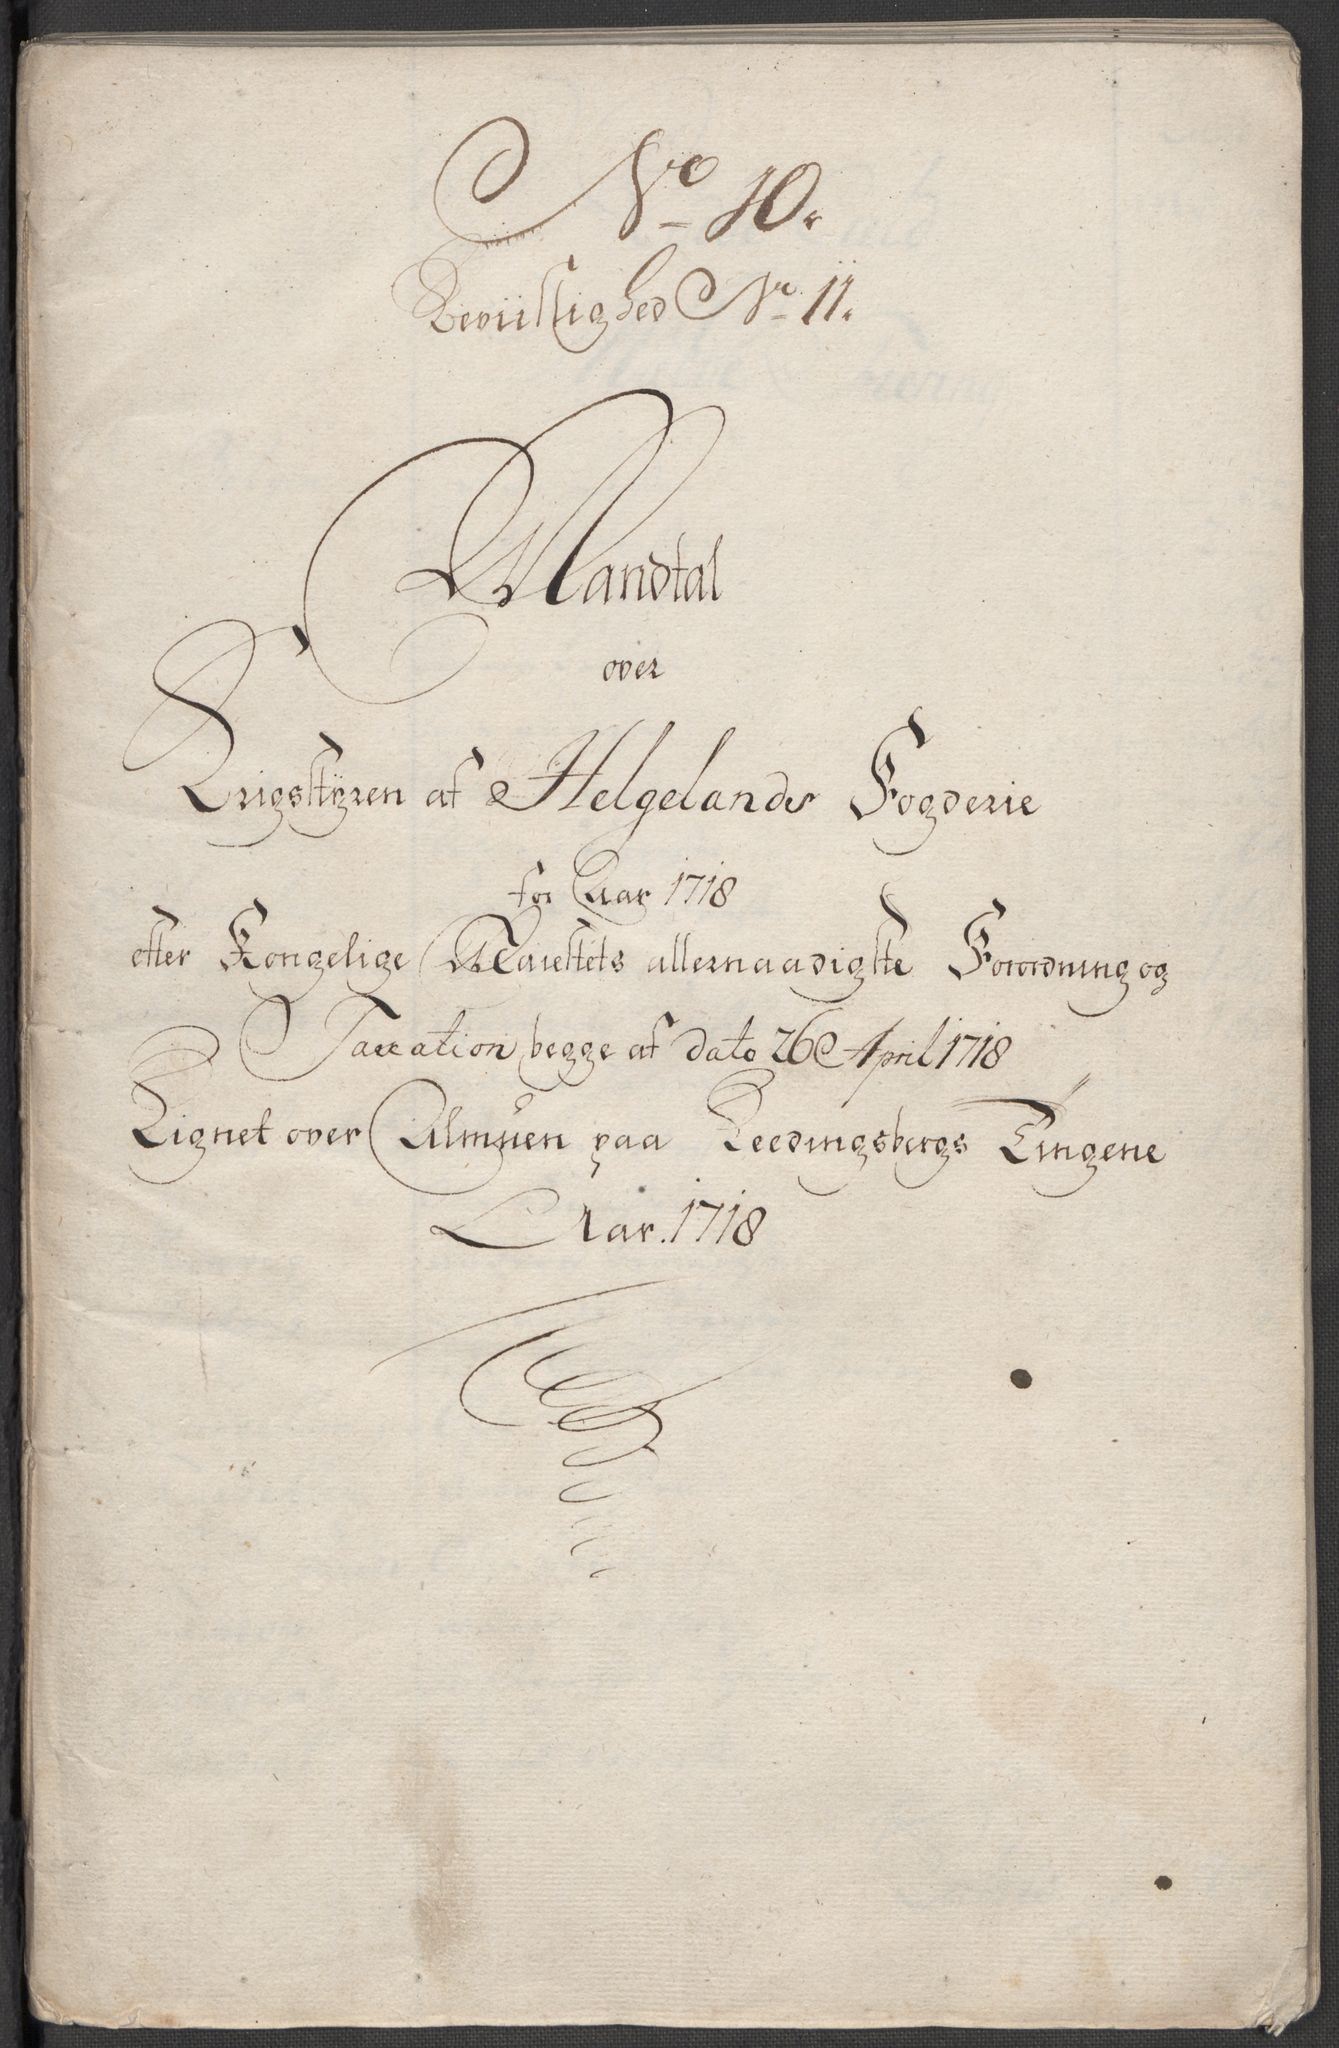 No 10.
Beviislighed No 11.
Mandtal
over
Krigsstyren af Helgelands Fogderie
for Aar 1718
efter Kongelige Maiestets allernaadigste Forordning og
Taxation begge af dato 26 April 1718
Lignet over Almuen paa Leedingsbergs Tingene
Aar. 1718